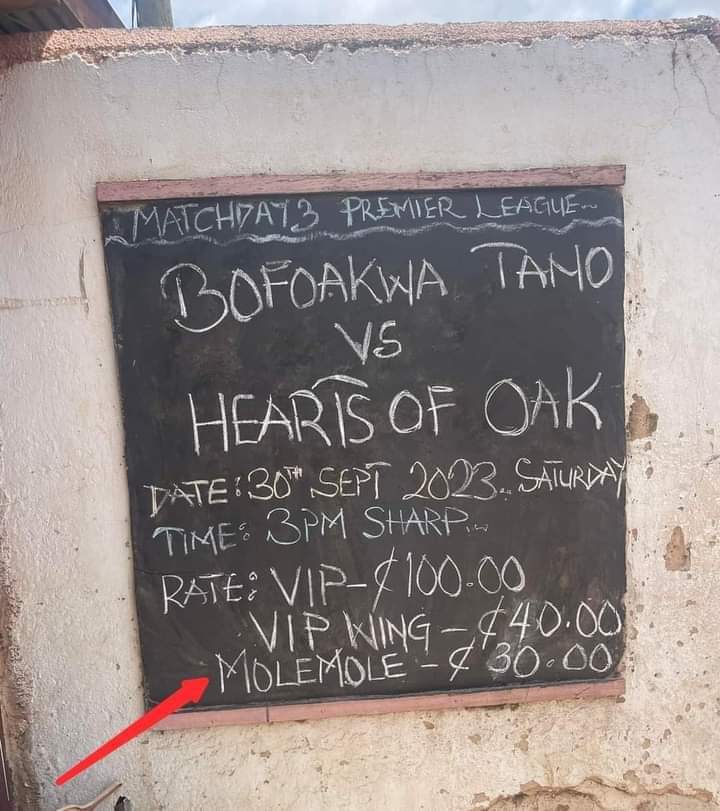 MATCHDAY 3 PREMIER LEAGUE..
BOFOAKWA TANO
VS
HEARTS OF OAK
DATE: 30TH SEPT 2023.. SATURDAY
TIME: 3PM SHARP...
RATE: VIP - ₵100.00
VIP WING - ₵40.00
MOLEMOLE - ₵30.00